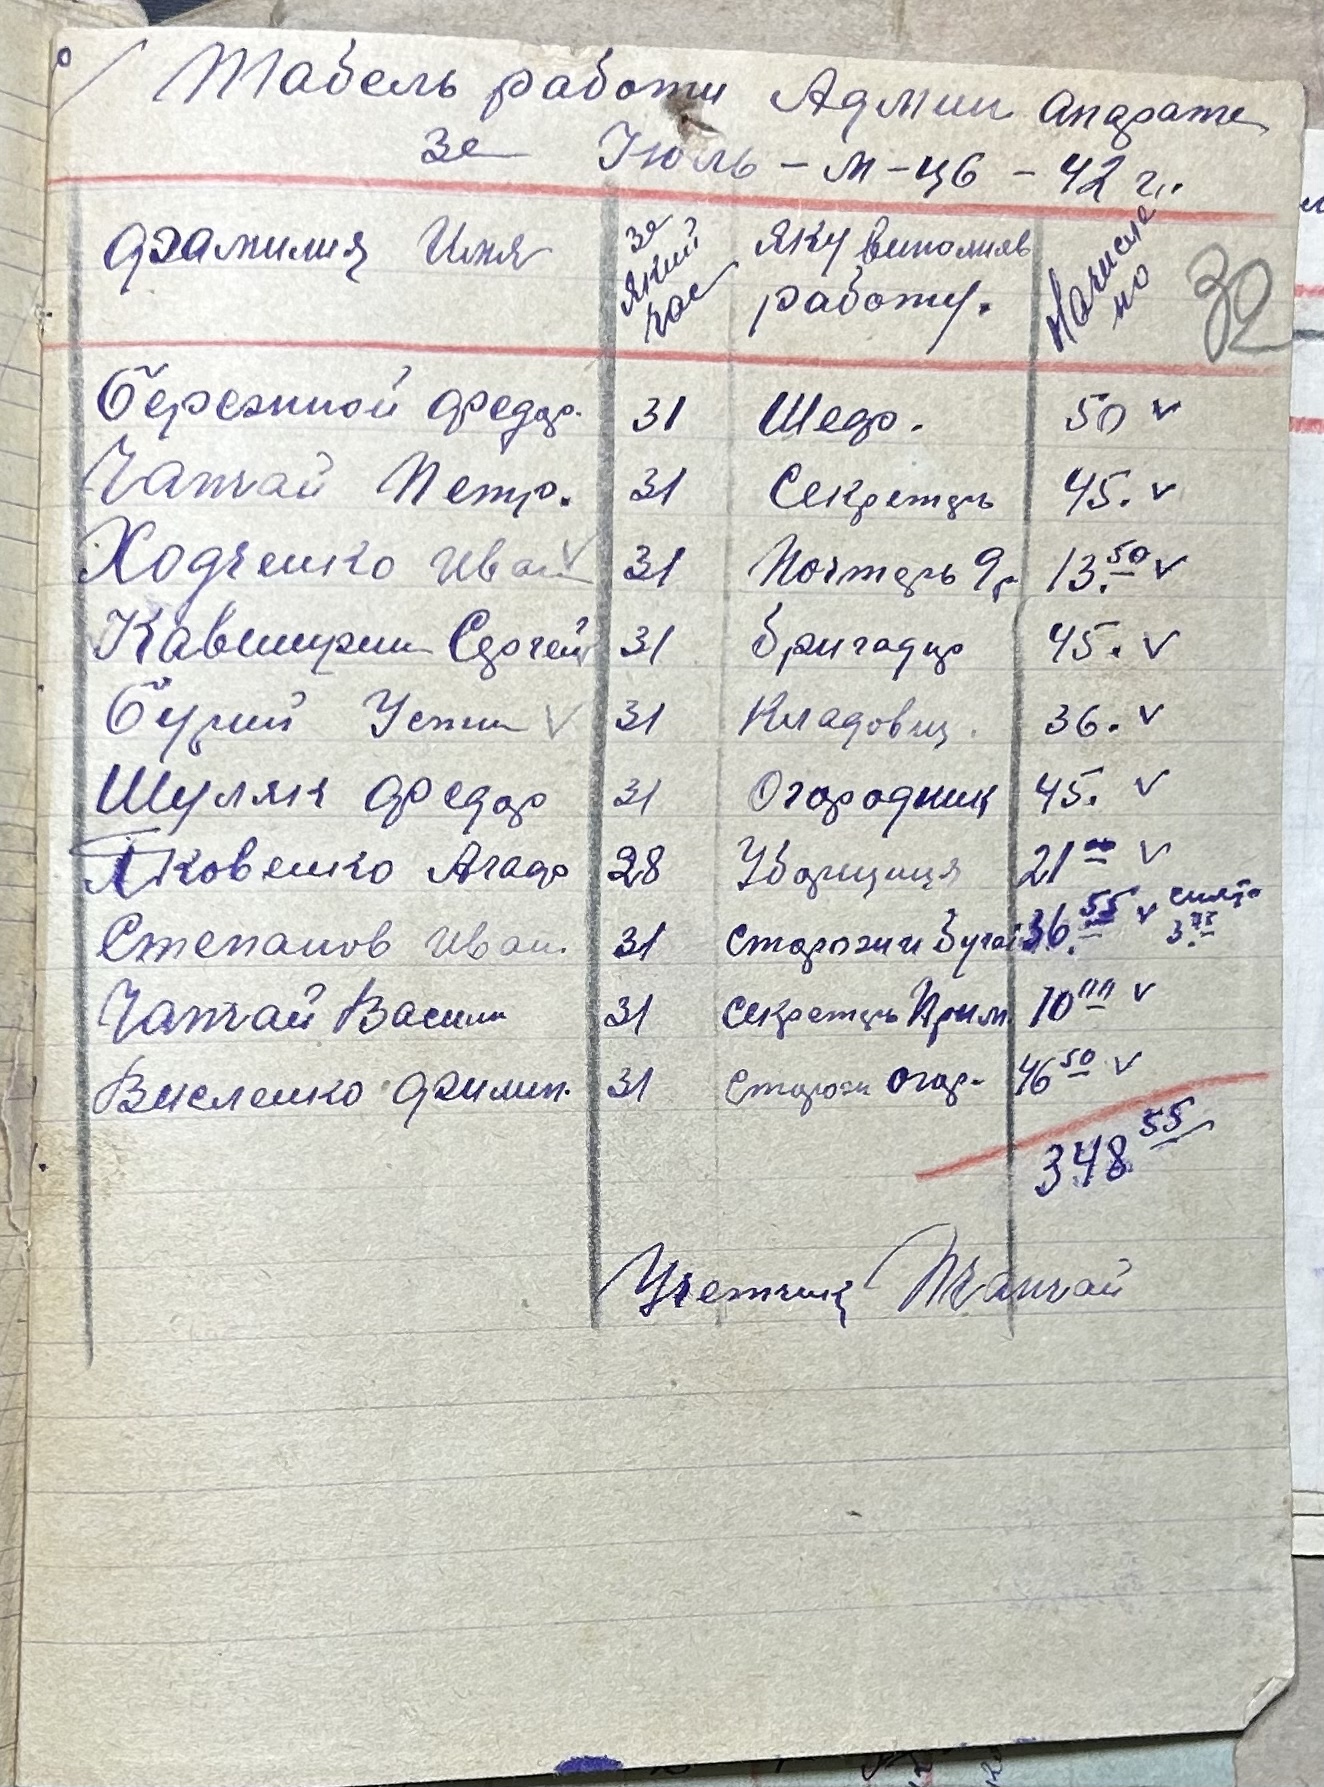 Табель работи Админ Аппрате
За Июль-м-ць-42 г.
Фамилия Имя За який час яку виполняв работу. Начислено 32
Бережной Федор. 31 Шеф. 50 v
Чапчай Петр. 31 Секретарь 45. v
Ходченко Иван v 31 Почтарь 9р 13.50 v
Сергей 31 бригадир 45. v
Бурий Устин v 31 Кладовщ. 36. v
Шуляк Федор 31 Огородник 45. v
Яковенко Агаф 28 Уборщиця 21 00 v
Степанов Иван. 31 Сторожи и Бугай 36.55 v снято 3.75
Чапчай Васили 31 Секретарь Прим. 10 00 v
Висленко Филип. 31 Сторож огор. 46 50 v
348.55
Учетчик ПЧапчай